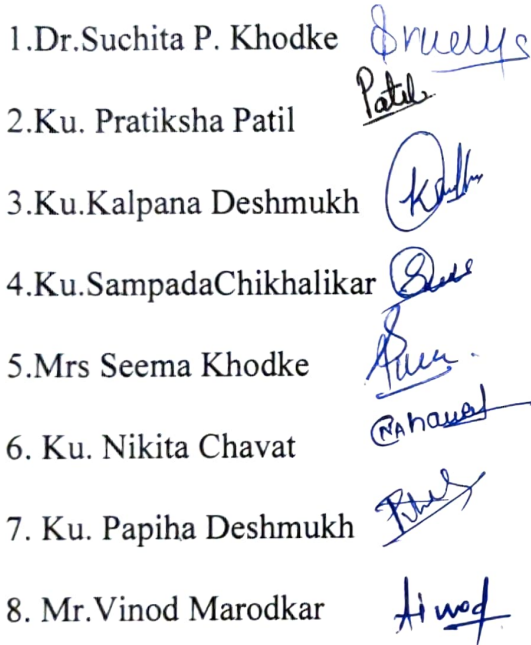 1.Dr.Suchita P. Khodke
2.Ku. Pratiksha Patil Patil
3.Ku.Kalpana Deshmukh
4.Ku.SampadaChikhalikar
5.Mrs Seema Khodke
6. Ku. Nikita Chavat
7. Ku. Papiha Deshmukh
8. Mr.Vinod Marodkar